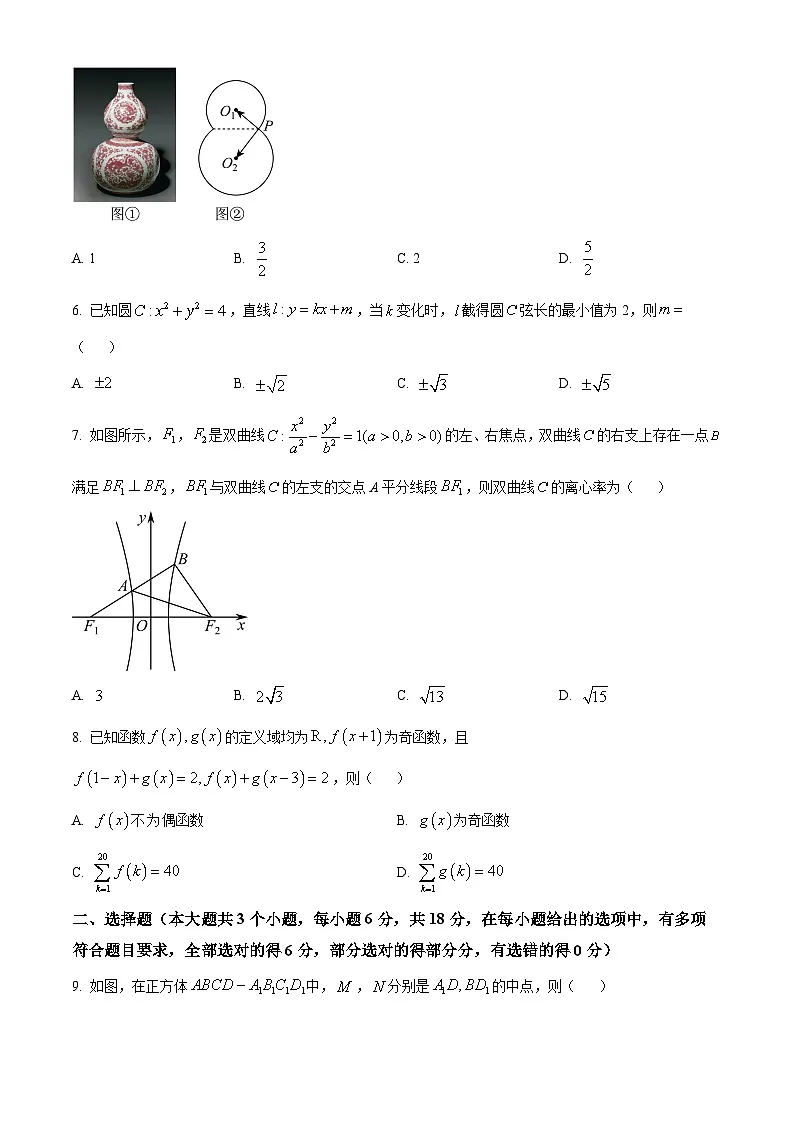 O₁
P
O₂
图① 图②
A. 1 B. 3/2 C. 2 D. 5/2
6. 已知圆C:x²+y²=4,直线l:y=kx+m,当k变化时,l截得圆C弦长的最小值为2,则m=
( )
A. ±2 B. ±√2 C. ±√3 D. ±√5
7. 如图所示,F₁,F₂是双曲线C:x²/a²−y²/b²=1(a>0,b>0)的左、右焦点,双曲线C的右支上存在一点B
满足BF₁⊥BF₂,BF₁与双曲线C的左支的交点A平分线段BF₁,则双曲线C的离心率为( )
y
B
A
F₁ O F₂ x
A. 3 B. 2√3 C. √13 D. √15
8. 已知函数f(x),g(x)的定义域均为R,f(x+1)为奇函数,且
f(1−x)+g(x)=2,f(x)+g(x−3)=2,则( )
A. f(x)不为偶函数 B. g(x)为奇函数
C. ∑_{k=1}^{20} f(k)=40 D. ∑_{k=1}^{20} g(k)=40
二、选择题(本大题共3个小题,每小题6分,共18分,在每小题给出的选项中,有多项
符合题目要求,全部选对的得6分,部分选对的得部分分,有选错的得0分)
9. 如图,在正方体ABCD−A₁B₁C₁D₁中,M,N分别是A₁D,BD₁的中点,则( )